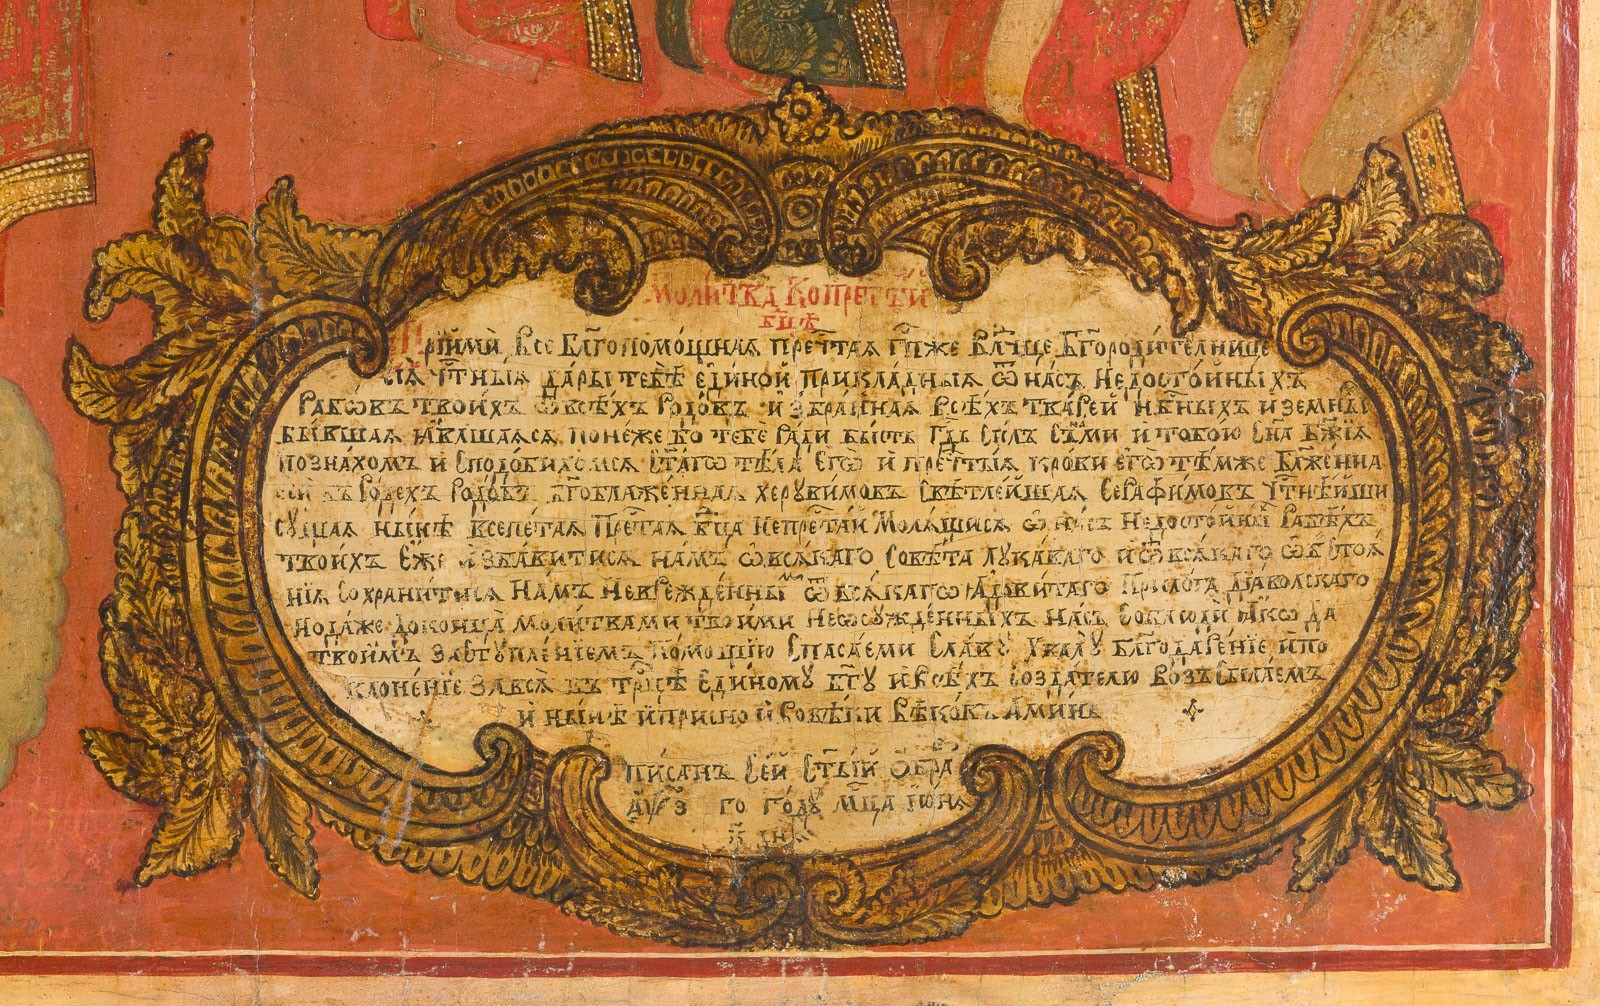 Моли́тва Ко прст҃ѣ́й
бц҃ѣ
Прїимѝ Все Бл҃гопомо́щная прⷭ҇тая Гж҃е Влⷣчце Бг҃ороди́телнице
сїя̀ чⷭ҇тныя да́ры тебѣ̀ еди́ной прикла́дныя ѿ на́съ недосто́йныхъ
Рабѡ́въ твои́хъ ѿ всѣ́хъ родо́въ и́збра́нная всѣ́хъ тва́рей нбⷭ҇ныхъ и земны́
бы́вшая ꙗ́вльшаяся поне́же бо тебѐ ра́ди бысть гдⷭ҇ь си́лъ съ на́ми и тобо́ю Сн҃а Бж҃їя
позна́хомъ и сподо́бихомся ст҃а́гѡ тѣ́ла егѡ̀ и прⷭ҇тыя кро́ви егѡ̀ тѣ́мже Бл҃же́нна
есѝ въ ро́дехъ родо́въ бг҃облаже́нная херувимовъ свѣтлѣ́йшая серафимовъ чⷭ҇тнѣ́йши
су́щая ны́нѣ всепѣ́тая Прⷭ҇тая бц҃а не преста́й Моля́щися ѡ на́съ недосто́йны́ рабѣ́хъ
твои́хъ е́же и́зба́витися на́мъ ѿ вся́каго совѣ́та лука́ваго и ѿ вся́каго ѡбстоѧ́
нїя сохрани́тися на́мъ невреждéнны́ ѿ вся́кагѡ ядови́таго прило́га дїа́волскаго
но да́же до конца̀ моли́твами твои́ми неѡсужде́нныхъ на́съ соблюдѝ ꙗ́кѡ да
твои́мъ заступле́нїемъ и по́мощїю спаса́еми сла́ву хвалу̀ бл҃годаре́нїе и по
клоне́нїе за вся̀ въ трⷪ҇цѣ еди́ному бг҃у и всѣ́хъ созда́телю возсыла́емъ
и ны́нѣ и при́сно и во вѣ́ки вѣкѡ́въ Ами́нь
пи́санъ се́й ст҃ы́й о́бра
го го́ду мц҃а їю́нѧ